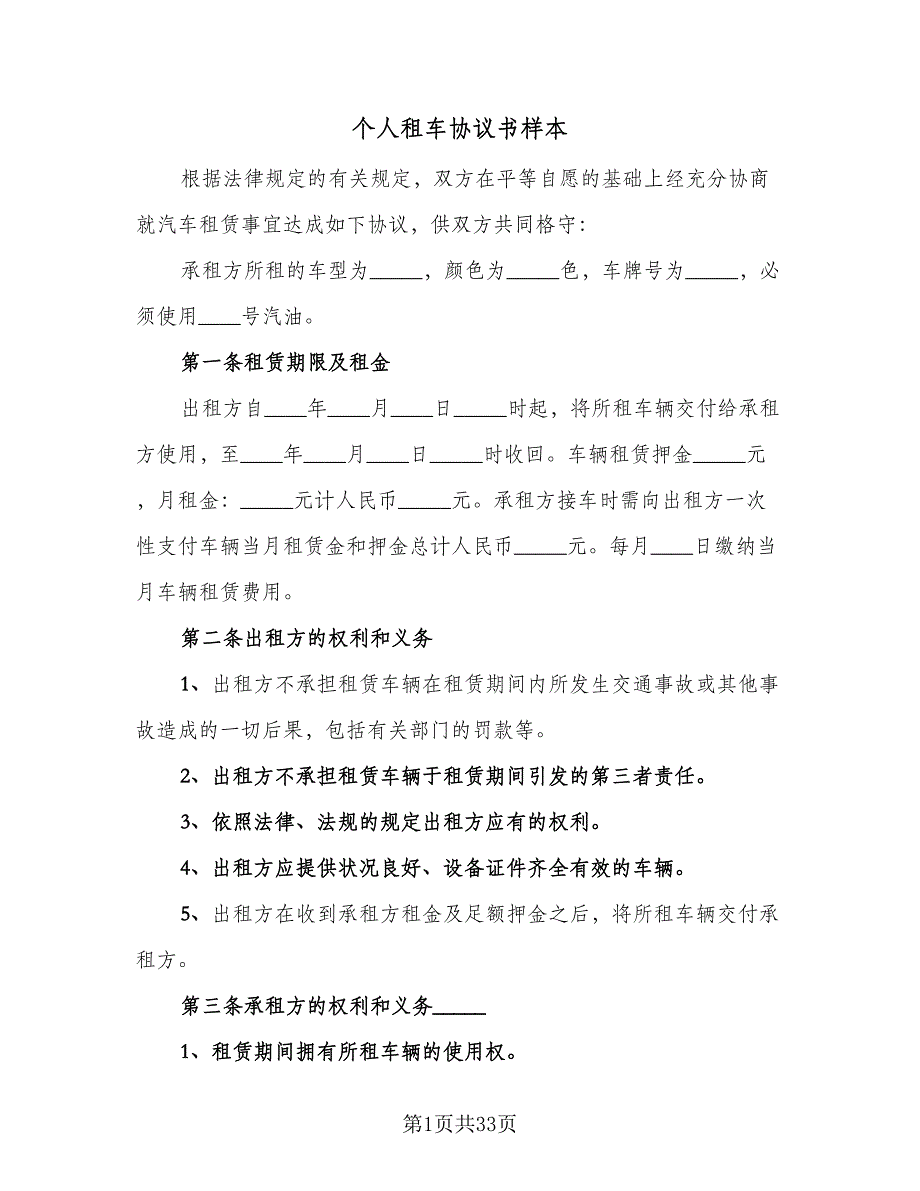 个人租车协议书样本
根据法律规定的有关规定，双方在平等自愿的基础上经充分协商
就汽车租赁事宜达成如下协议，供双方共同格守：
承租方所租的车型为_____，颜色为_____色，车牌号为_____，必
须使用____号汽油。
第一条租赁期限及租金
出租方自____年____月____日_____时起，将所租车辆交付给承租
方使用，至____年____月____日_____时收回。车辆租赁押金_____元
，月租金：_____元计人民币_____元。承租方接车时需向出租方一次
性支付车辆当月租赁金和押金总计人民币_____元。每月____日缴纳当
月车辆租赁费用。
第二条出租方的权利和义务
1、出租方不承担租赁车辆在租赁期间内所发生交通事故或其他事
故造成的一切后果，包括有关部门的罚款等。
2、出租方不承担租赁车辆于租赁期间引发的第三者责任。
3、依照法律、法规的规定出租方应有的权利。
4、出租方应提供状况良好、设备证件齐全有效的车辆。
5、出租方在收到承租方租金及足额押金之后，将所租车辆交付承
租方。
第三条承租方的权利和义务_____
1、租赁期间拥有所租车辆的使用权。
第1页共33页